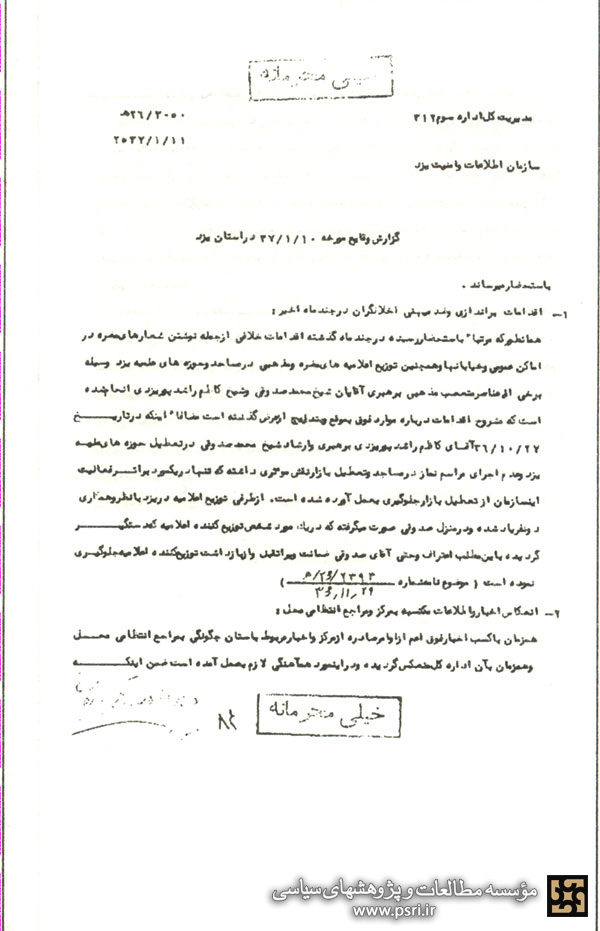 خیلی محرمانه
مدیریت کل اداره سوم ۳۱۲
۲۶/۳۰۵۰ ه
۲۵۳۷/۱/۱۱
سازمان اطلاعات وامنیت یزد
گزارش وقایع مورخه ۳۷/۱/۱۰ دراستان یزد
باستحضارمیرساند .
۱- اقدامات براندازی وضد میهنی اخلالگران درچند ماه اخیر :
همانطورکه مرتباً باستحضاررسیده درچند ماه گذشته اقدامات خلافی ازجمله نوشتن شعارهای مضره در
اماکن عمومی وخیابانها وهمچنین توزیع اعلامیه های مضره ومذهبی درمساجد وحوزه های علمیه یزد وسیله
برخی ازعناصرمتعصب مذهبی برهبری آقایان شیخ محمد صدوقی وشیخ کاظم راشد پوریزدی انجام شده
است که مشروح اقدامات درباره موارد فوق بموقع وبتدریج ازعرض گذشته است مضافاً اینکه درتاریخ
۳۶/۱۰/۲۷ آقای کاظم راشد پوریزدی برهبری وارشاد شیخ محمد صدوقی درتعطیل حوزه های علمیه
یزد وعدم اجرای مراسم نماز درمساجد وتعطیل بازارنقش موثری داشته که تنها دریکمورد براثرفعالیت
اینسازمان از تعطیل بازارجلوگیری بعمل آورده شده است. ازطرفی توزیع اعلامیه دریزد بانظروهمکاری
دونفریاد شده ودرمنزل صدوقی صورت میگرفته که دریک مورد شخص توزیع کننده اعلامیه که دستگیر
گردیده باین مطلب اعتراف وحتی آقای صدوقی ضمانت ویراتقبل وازبازداشت توزیع کننده اعلامیه جلوگیری
نموده است ( موضوع نامه شماره ۲۶/۲۳۹۳/ه )
۳۶,۱۱,۲۹
۲- انعکاس اخبارواطلاعات مکتسبه بمرکز ومراجع انتظامی محل :
همزمان باکسب اخبارفوق اعم ازاوامرصادره ازمرکز واخبارمربوط باستان چگونگی بمراجع انتظامی محل
وهمزمان بآن اداره کل منعکس گردیده ودراینمورد هماهنگی لازم بعمل آمده است ضمن اینکه
خیلی محرمانه
مؤسسه مطالعات و پژوهشهای سیاسی
www.psri.ir